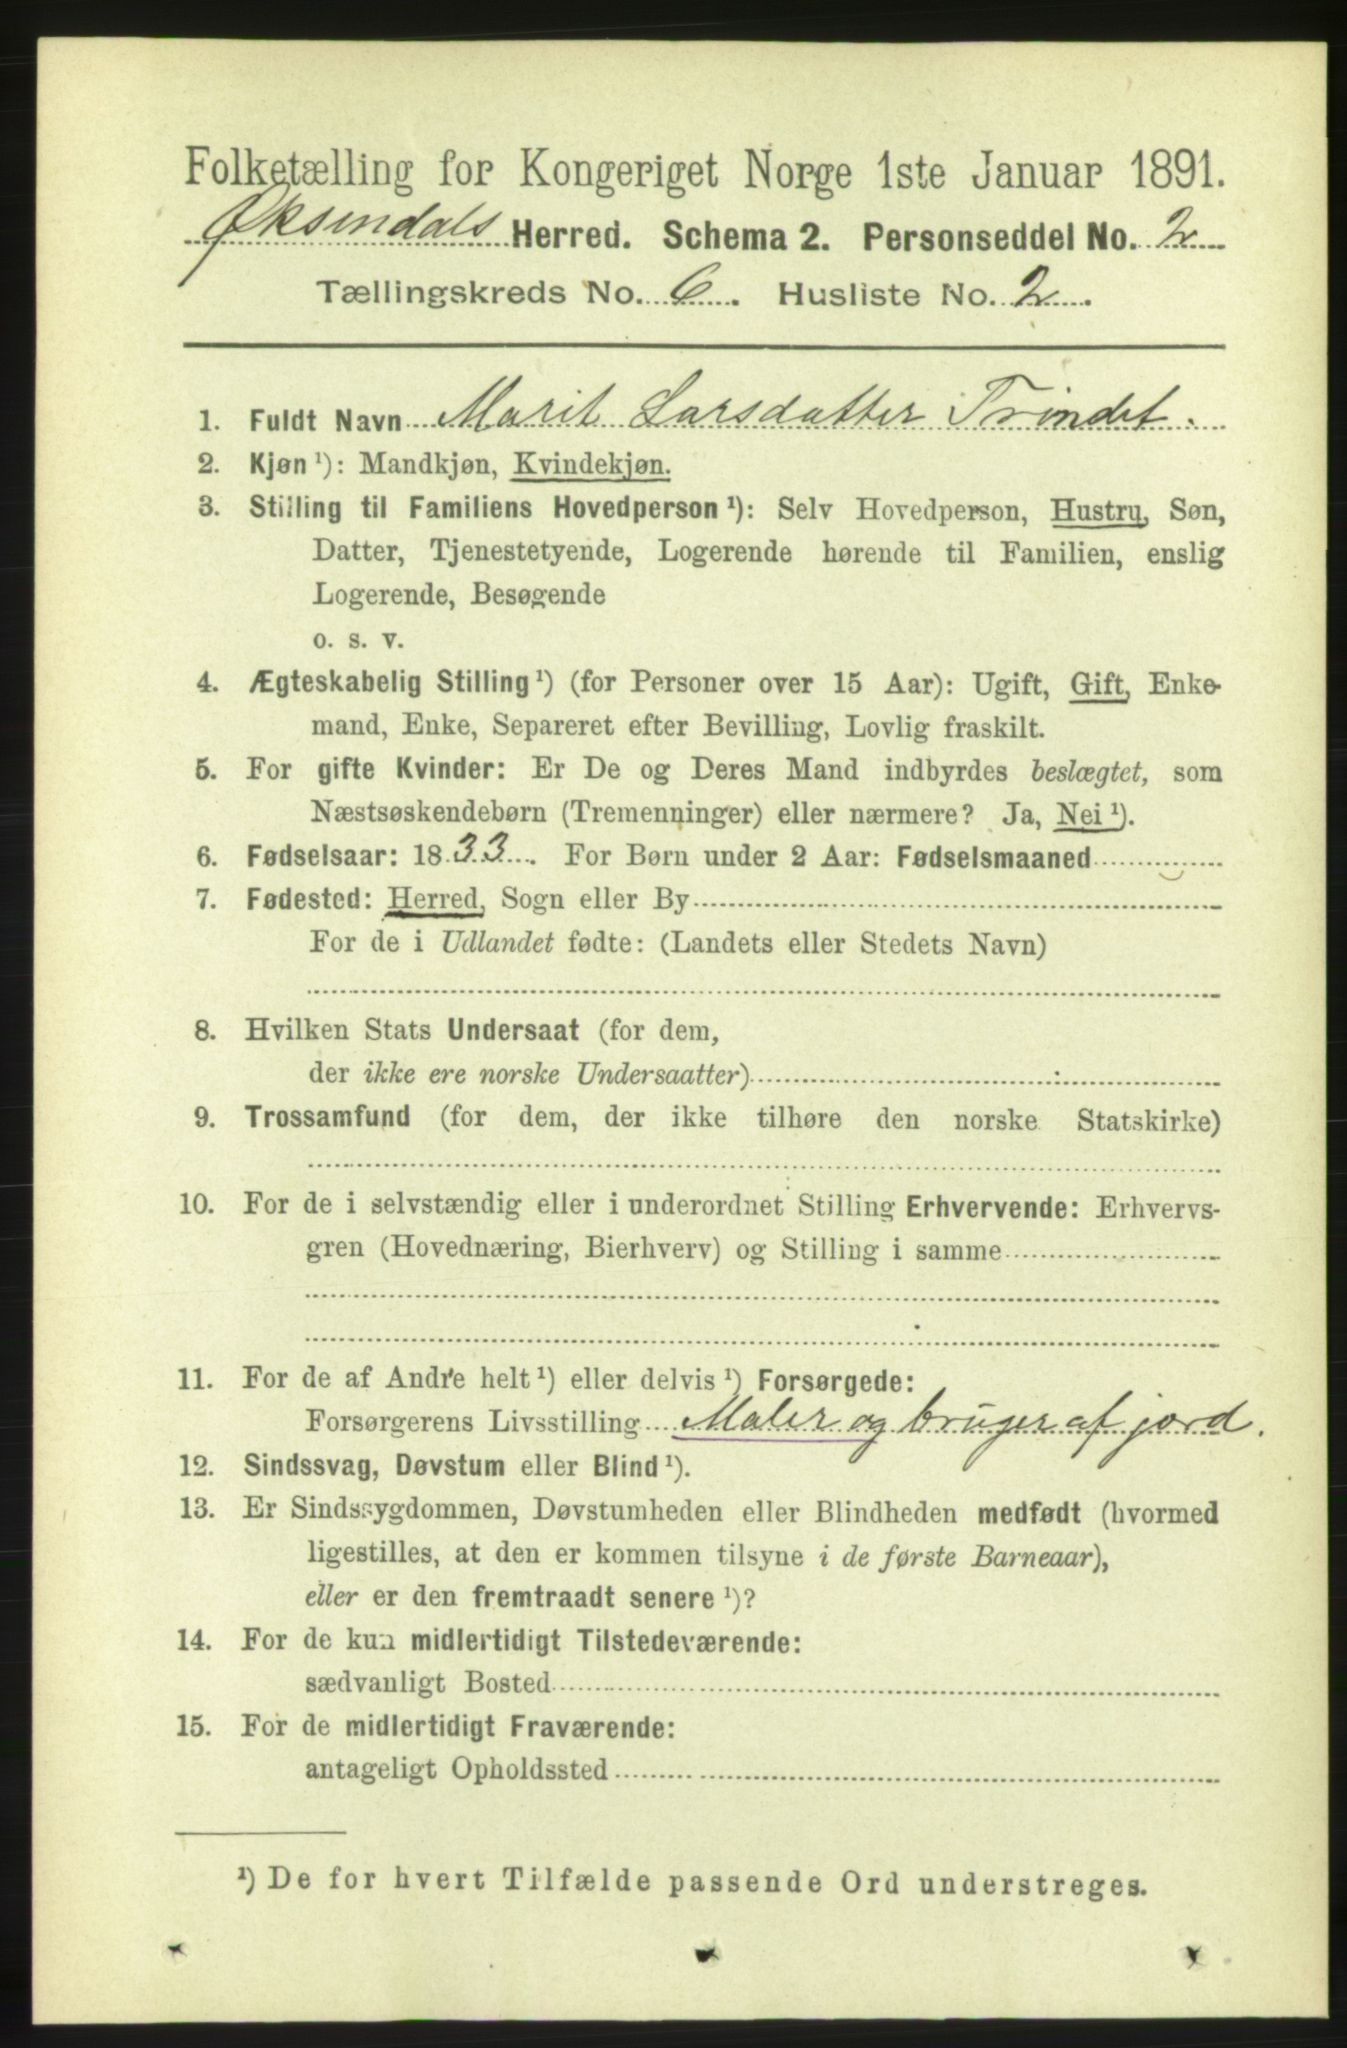 Folketælling for Kongeriget Norge 1ste Januar 1891.
Øksendals Herred. Schema 2. Personseddel No. 2
Tællingskreds No. 6. Husliste No. 2.
1. Fuldt Navn Marit Larsdatter Trindet.
2. Kjøn ¹): Mandkjøn, Kvindekjøn.
3. Stilling til Familiens Hovedperson ¹): Selv Hovedperson, Hustru, Søn,
Datter, Tjenestetyende, Logerende hørende til Familien, enslig
Logerende, Besøgende
o. s. v.
4. Ægteskabelig Stilling ¹) (for Personer over 15 Aar): Ugift, Gift, Enke-
mand, Enke, Separeret efter Bevilling, Lovlig fraskilt.
5. For gifte Kvinder: Er De og Deres Mand indbyrdes beslægtet, som
Næstsøskendebørn (Tremenninger) eller nærmere? Ja, Nei ¹).
6. Fødselsaar: 1833. For Børn under 2 Aar: Fødselsmaaned
7. Fødested: Herred, Sogn eller By
For de i Udlandet fødte: (Landets eller Stedets Navn)
8. Hvilken Stats Undersaat (for dem,
der ikke ere norske Undersaatter)
9. Trossamfund (for dem, der ikke tilhøre den norske Statskirke)
10. For de i selvstændig eller i underordnet Stilling Erhvervende: Erhvervs-
gren (Hovednæring, Bierhverv) og Stilling i samme
11. For de af Andre helt ¹) eller delvis ¹) Forsørgede:
Forsørgerens Livsstilling Maler og bruger af jord.
12. Sindssvag, Døvstum eller Blind ¹).
13. Er Sindssygdommen, Døvstumheden eller Blindheden medfødt (hvormed
ligestilles, at den er kommen tilsyne i de første Barneaar),
eller er den fremtraadt senere ¹)?
14. For de kun midlertidigt Tilstedeværende:
sædvanligt Bosted
15. For de midlertidigt Fraværende:
antageligt Opholdssted
¹) De for hvert Tilfælde passende Ord understreges.